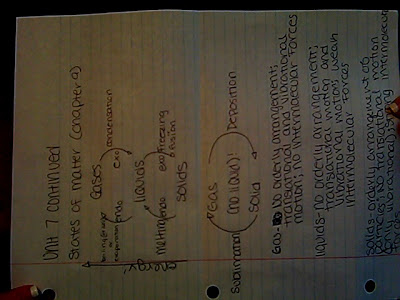 Unit 7 continued
States of matter (chapter 9)
Gases
condensation
exo
endo
liquids
melting
endo
exo
freezing
fusion
solids
Gas
Deposition
(no liquid)!
Sublimation
Solid
Gas- No orderly arrangement;
translational and vibrational
motion; no intermolecular forces
liquids- no orderly arrangement;
translational motion and
vibrational motion; weak
intermolecular forces
Solids- orderly arrangement of
particles; no translational motion
only vibrational; strong intermolecular